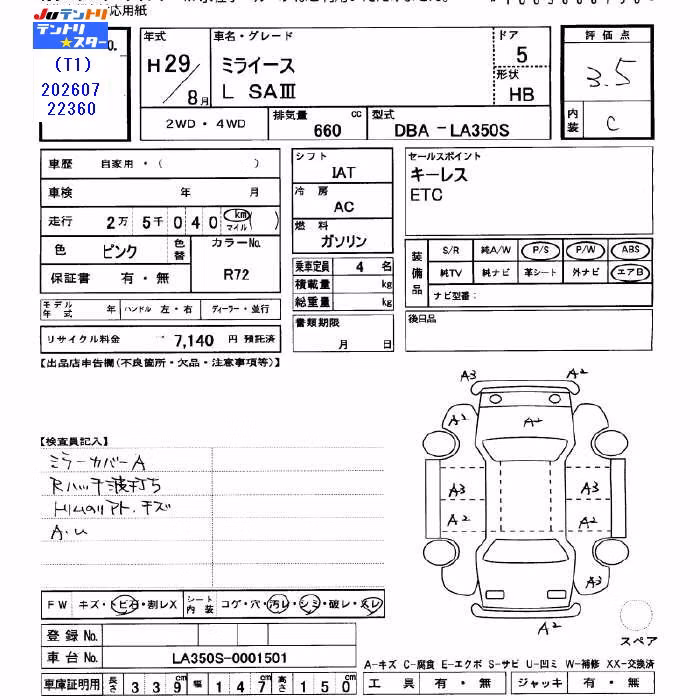 応用紙
Juテントリ
テントリ★スター
(T1)
202607
22360
年式
H29/8月
車名・グレード
ミライース
L SAⅢ
ドア
5
形状
HB
評価点
3.5
内装
C
2WD・4WD
排気量
660 cc
型式
DBA-LA350S
車歴 自家用・( )
車検 年 月
走行 2万 5千 0 4 0 km マイル ( )
色 ピンク 色替 カラーNo. R72
保証書 有・無
モデル年式 年 ハンドル 左・右 ディーラー・並行
リサイクル料金 7,140 円 預託済
シフト
IAT
冷房
AC
燃料
ガソリン
乗車定員 4 名
積載量 kg
総重量 kg
書類期限
月 日
セールスポイント
キーレス
ETC
装備品
S/R 純A/W P/S P/W ABS
純TV 純ナビ 革シート 外ナビ エアB
ナビ型番:
後日品
【出品店申告欄(不良箇所・欠品・注意事項等)】
【検査員記入】
ミラーカバーA
Rハッチ波打ち
トリムのリアト、キズ
A・U
A3 A2
A2 A2
A3 A3
A2 A2
A3
A2
スペア
FW キズ・トビ石・割レX シート内装 コゲ・穴・汚レ・シミ・破レ・スレ
登録No.
車台No. LA350S-0001501
車庫証明用 長さ 339 幅 147 高さ 150
A-キズ C-腐食 E-エクボ S-サビ U-凹ミ W-補修 XX-交換済
工具 有・無 ジャッキ 有・無